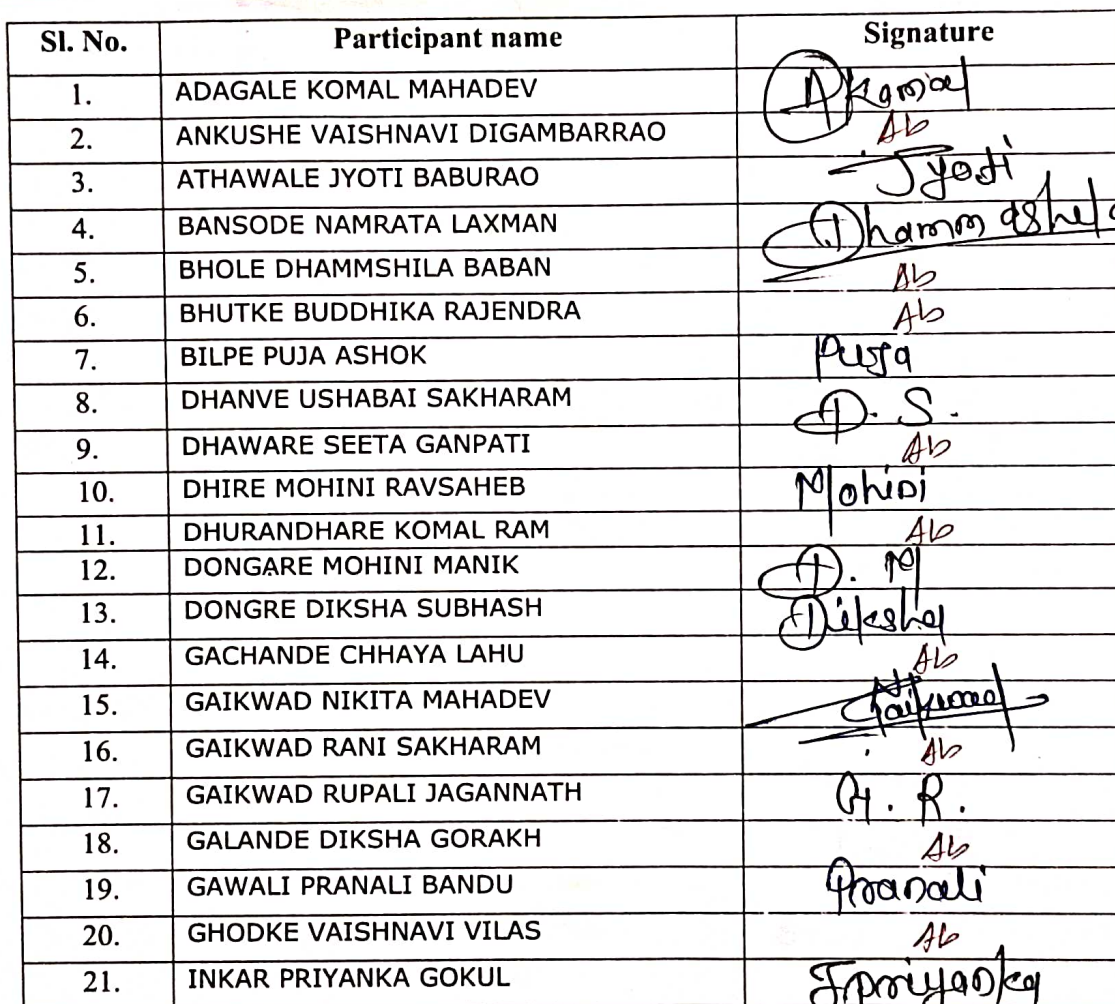 Sl. No. Participant name Signature
1. ADAGALE KOMAL MAHADEV AKomal
2. ANKUSHE VAISHNAVI DIGAMBARRAO Ab
3. ATHAWALE JYOTI BABURAO Jyoti
4. BANSODE NAMRATA LAXMAN Dhammashela
5. BHOLE DHAMMSHILA BABAN Ab
6. BHUTKE BUDDHIKA RAJENDRA Ab
7. BILPE PUJA ASHOK Puja
8. DHANVE USHABAI SAKHARAM D. S.
9. DHAWARE SEETA GANPATI Ab
10. DHIRE MOHINI RAVSAHEB Mohini
11. DHURANDHARE KOMAL RAM Ab
12. DONGARE MOHINI MANIK D. M
13. DONGRE DIKSHA SUBHASH Diksha
14. GACHANDE CHHAYA LAHU Ab
15. GAIKWAD NIKITA MAHADEV Gaikwad
16. GAIKWAD RANI SAKHARAM Ab
17. GAIKWAD RUPALI JAGANNATH G. R.
18. GALANDE DIKSHA GORAKH Ab
19. GAWALI PRANALI BANDU Pranali
20. GHODKE VAISHNAVI VILAS Ab
21. INKAR PRIYANKA GOKUL Ipriyanka